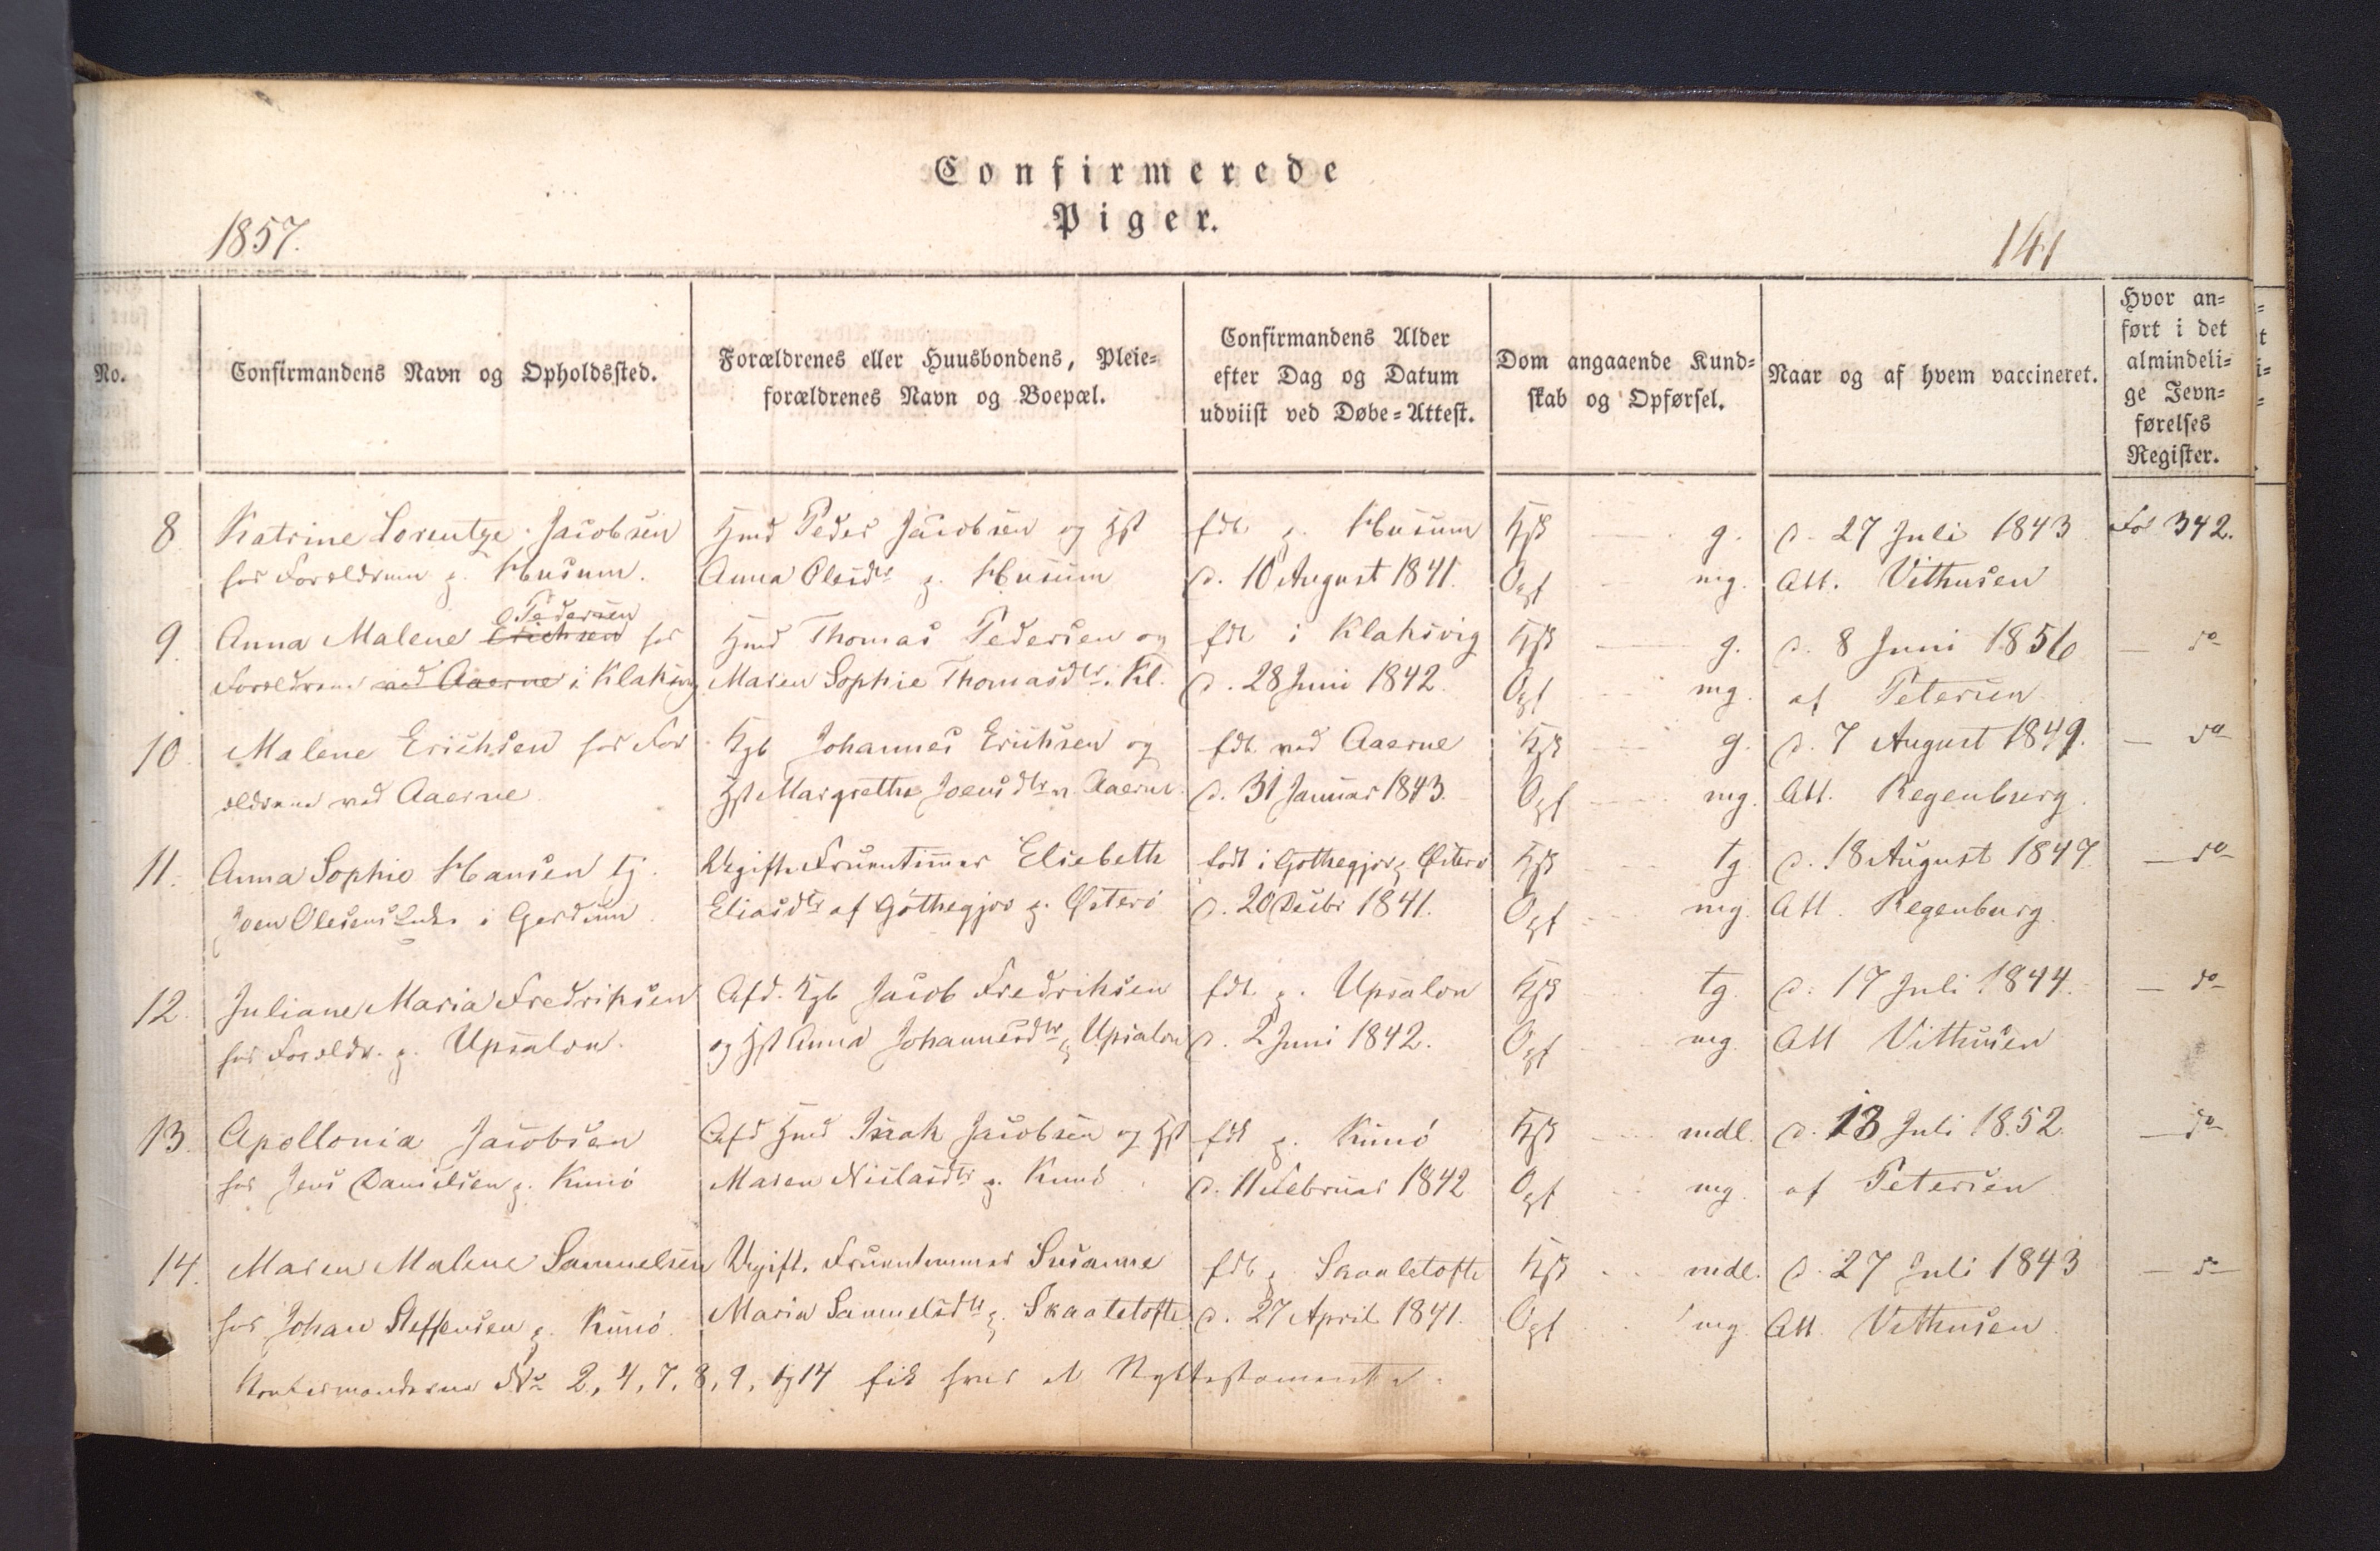 Confirmerede
Piger.
1857.
141
No.
Confirmandens Navn og Opholdssted.
Forældrenes eller Huusbondens, Pleie=
forældrenes Navn og Boepæl.
Confirmandens Alder
efter Dag og Datum
udviist ved Døbe=Attest.
Dom angaaende Kund=
skab og Opførsel.
Naar og af hvem vaccineret.
Hvor an=
ført i det
almindeli=
ge Jevn=
førelses
Register.
8 Katrine Lorentze Jacobsen Hmd Peder Jacobsen og Hst fdt p. Husum Ksk g. d. 27 Juli 1843 Fol 342.
hos Forældrene p. Husum. Anna Olesdtr p. Husum d. 10 August 1841. Opf mg. Att. Vithusen
Pedersen
9. Anna Malene Erichsen hos Hmd Thomas Pedersen og fdt i Klaksvig Ksk g. d. 8 Juni 1856 — do
Forældrene ved Aaerne i Klaksvig Maren Sophie Thomasdtr i Kl. d. 28 Juni 1842. Opf mg. af Petersen
10. Malene Erichsen hos For Kgb Johannes Erichsen og fdt ved Aaerne Ksk g. d. 7 August 1849. — do
ældrene ved Aaerne Hst Margrethe Joensdtr v. Aaerne d. 31 Januar 1843. Opf mg. Att. Regenburg
11. Anna Sophie Hansen tj. Ugifte Fruentimmer Elsebeth født i Gøthegjov p. Østerø Ksk tg. d. 18 August 1847. — do
Joen Olesens Enke i Gerdum Eliasdtr af Gøthegjov p. Østerø d. 20 Decbr 1841. Opf mg. Att. Regenburg
12. Juliane Maria Fredriksen Afd. Kgb Jacob Fredriksen fdt p. Upsalon Ksk tg. d. 17 Juli 1844. — do
hos Forældr. p. Upsalon. og Hst Anna Johannesdtr p. Upsalon d. 2 Juni 1842. Opf mg. Att Vithusen
13. Apollonia Jacobsen Afd Hmd Isak Jacobsen og Hst fdt p. Kunø Ksk mdl. d. 13 Juli 1852. — do
hos Jens Danielsen p. Kunø Maren Niclasdtr p. Kunø d. 11 Februar 1842 Opf mg. af Petersen
14. Maren Malene Samuelsen Ugift. Fruentimmer Susanne fdt p. Skaaletofte Ksk mdl. d. 27 Juli 1843 — do
hos Johan Steffensen p. Kunø. Maria Samuelsdtr p. Skaaletofte d. 27 April 1841. Opf mg. Att. Vithusen
Konfirmanderne No 2, 4, 7, 8, 9, og 14 fik hver et Nyttestamente.